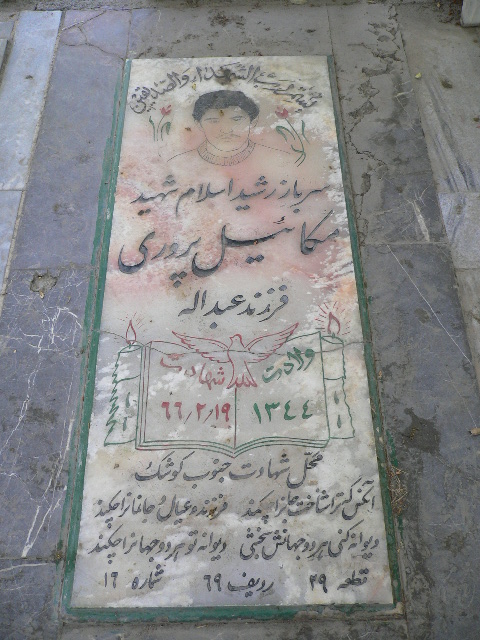 بسم رب الشهداء والصدیقین
سرباز رشید اسلام شهید
میکائیل پروری
فرزند عبداله
ولادت شهادت
۱۳۴۴ ۶۶/۲/۱۹
محل شهادت جنوب کوشک
آنکس که ترا شناخت جانرا چکند فرزند و عیال و خانمانرا چکند
دیوانه کنی هر دو جهانش بخشی دیوانه تو هر دو جهانرا چکند
قطعه ۲۹ ردیف ۶۹ شماره ۱۶